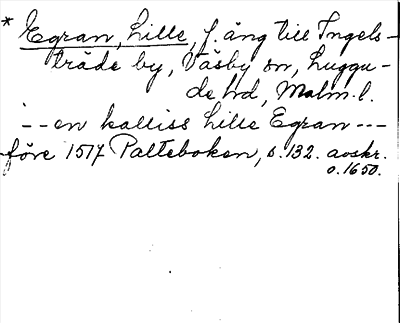 * Egran, Lille, f. äng till Ingels-
träde by, Väsby sn, Luggu-
de hd, Malm. l.
-- en kalliss Lille Egran ---
före 1517 Palteboken, s. 132. avskr.
o. 1650.